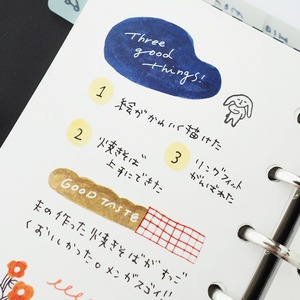 Three
good
things!
1
絵がかわいく描けた
2
焼きそば
上手にできた
3
リングフィット
がんばれた
GOOD TASTE
夫の作った焼きそばが すっご
くおいしかった。メンがスゴイ!!